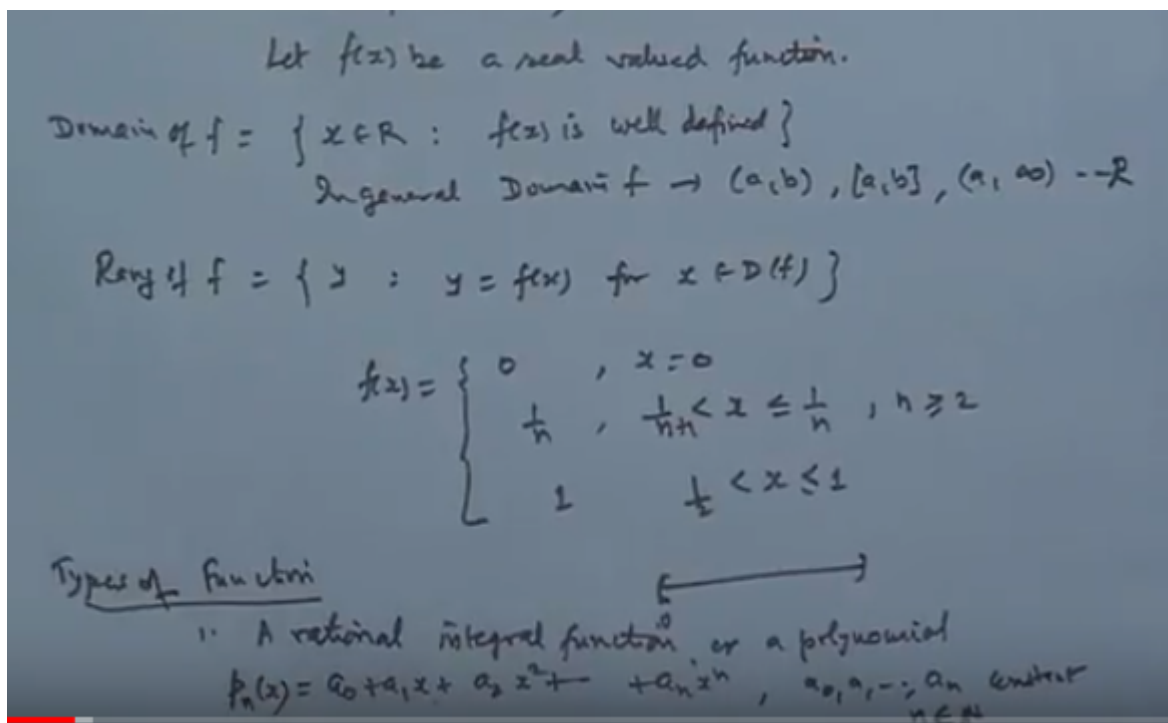 Let f(x) be a real valued function.
Domain of f = { x ∈ R : f(x) is well defined }
In general Domain f → (a, b), [a, b], (a, ∞) -- R
Rang of f = { y : y = f(x) for x ∈ D(f) }
f(x) = { 0 , x = 0
1/n , 1/n+1 < x ≤ 1/n , n ≥ 2
1 1/2 < x ≤ 1
Types of Function
0
1. A rational integral function or a polynomial
Pn(x) = a0 + a1 x + a2 x^2 + - + an x^n , a0, a1 -, an constant
n ∈ N